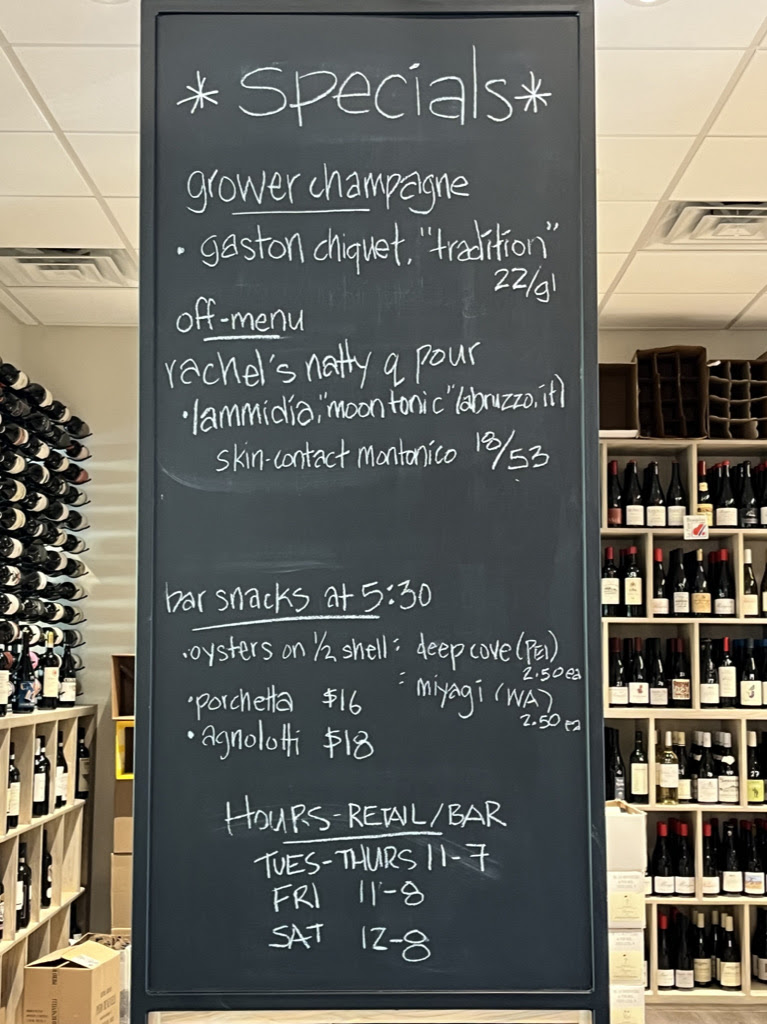 * Specials *
grower champagne
• gaston chiquet, "tradition"
22/gl
off-menu
rachel's natty q pour
• lammidia, "moontonic" (abruzzo, it)
skin-contact montonico 18/53
bar snacks at 5:30
• oysters on 1/2 shell : deep cove (PEI)
2.50 ea
: miyagi (WA)
2.50 ea
• porchetta $16
• agnolotti $18
HOURS - RETAIL/BAR
TUES-THURS 11-7
FRI 11-8
SAT 12-8